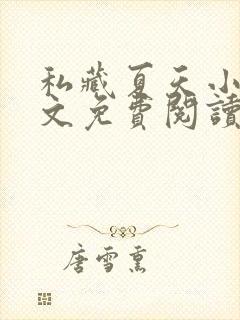 私藏夏天小
文免費閱讀
唐雪熏